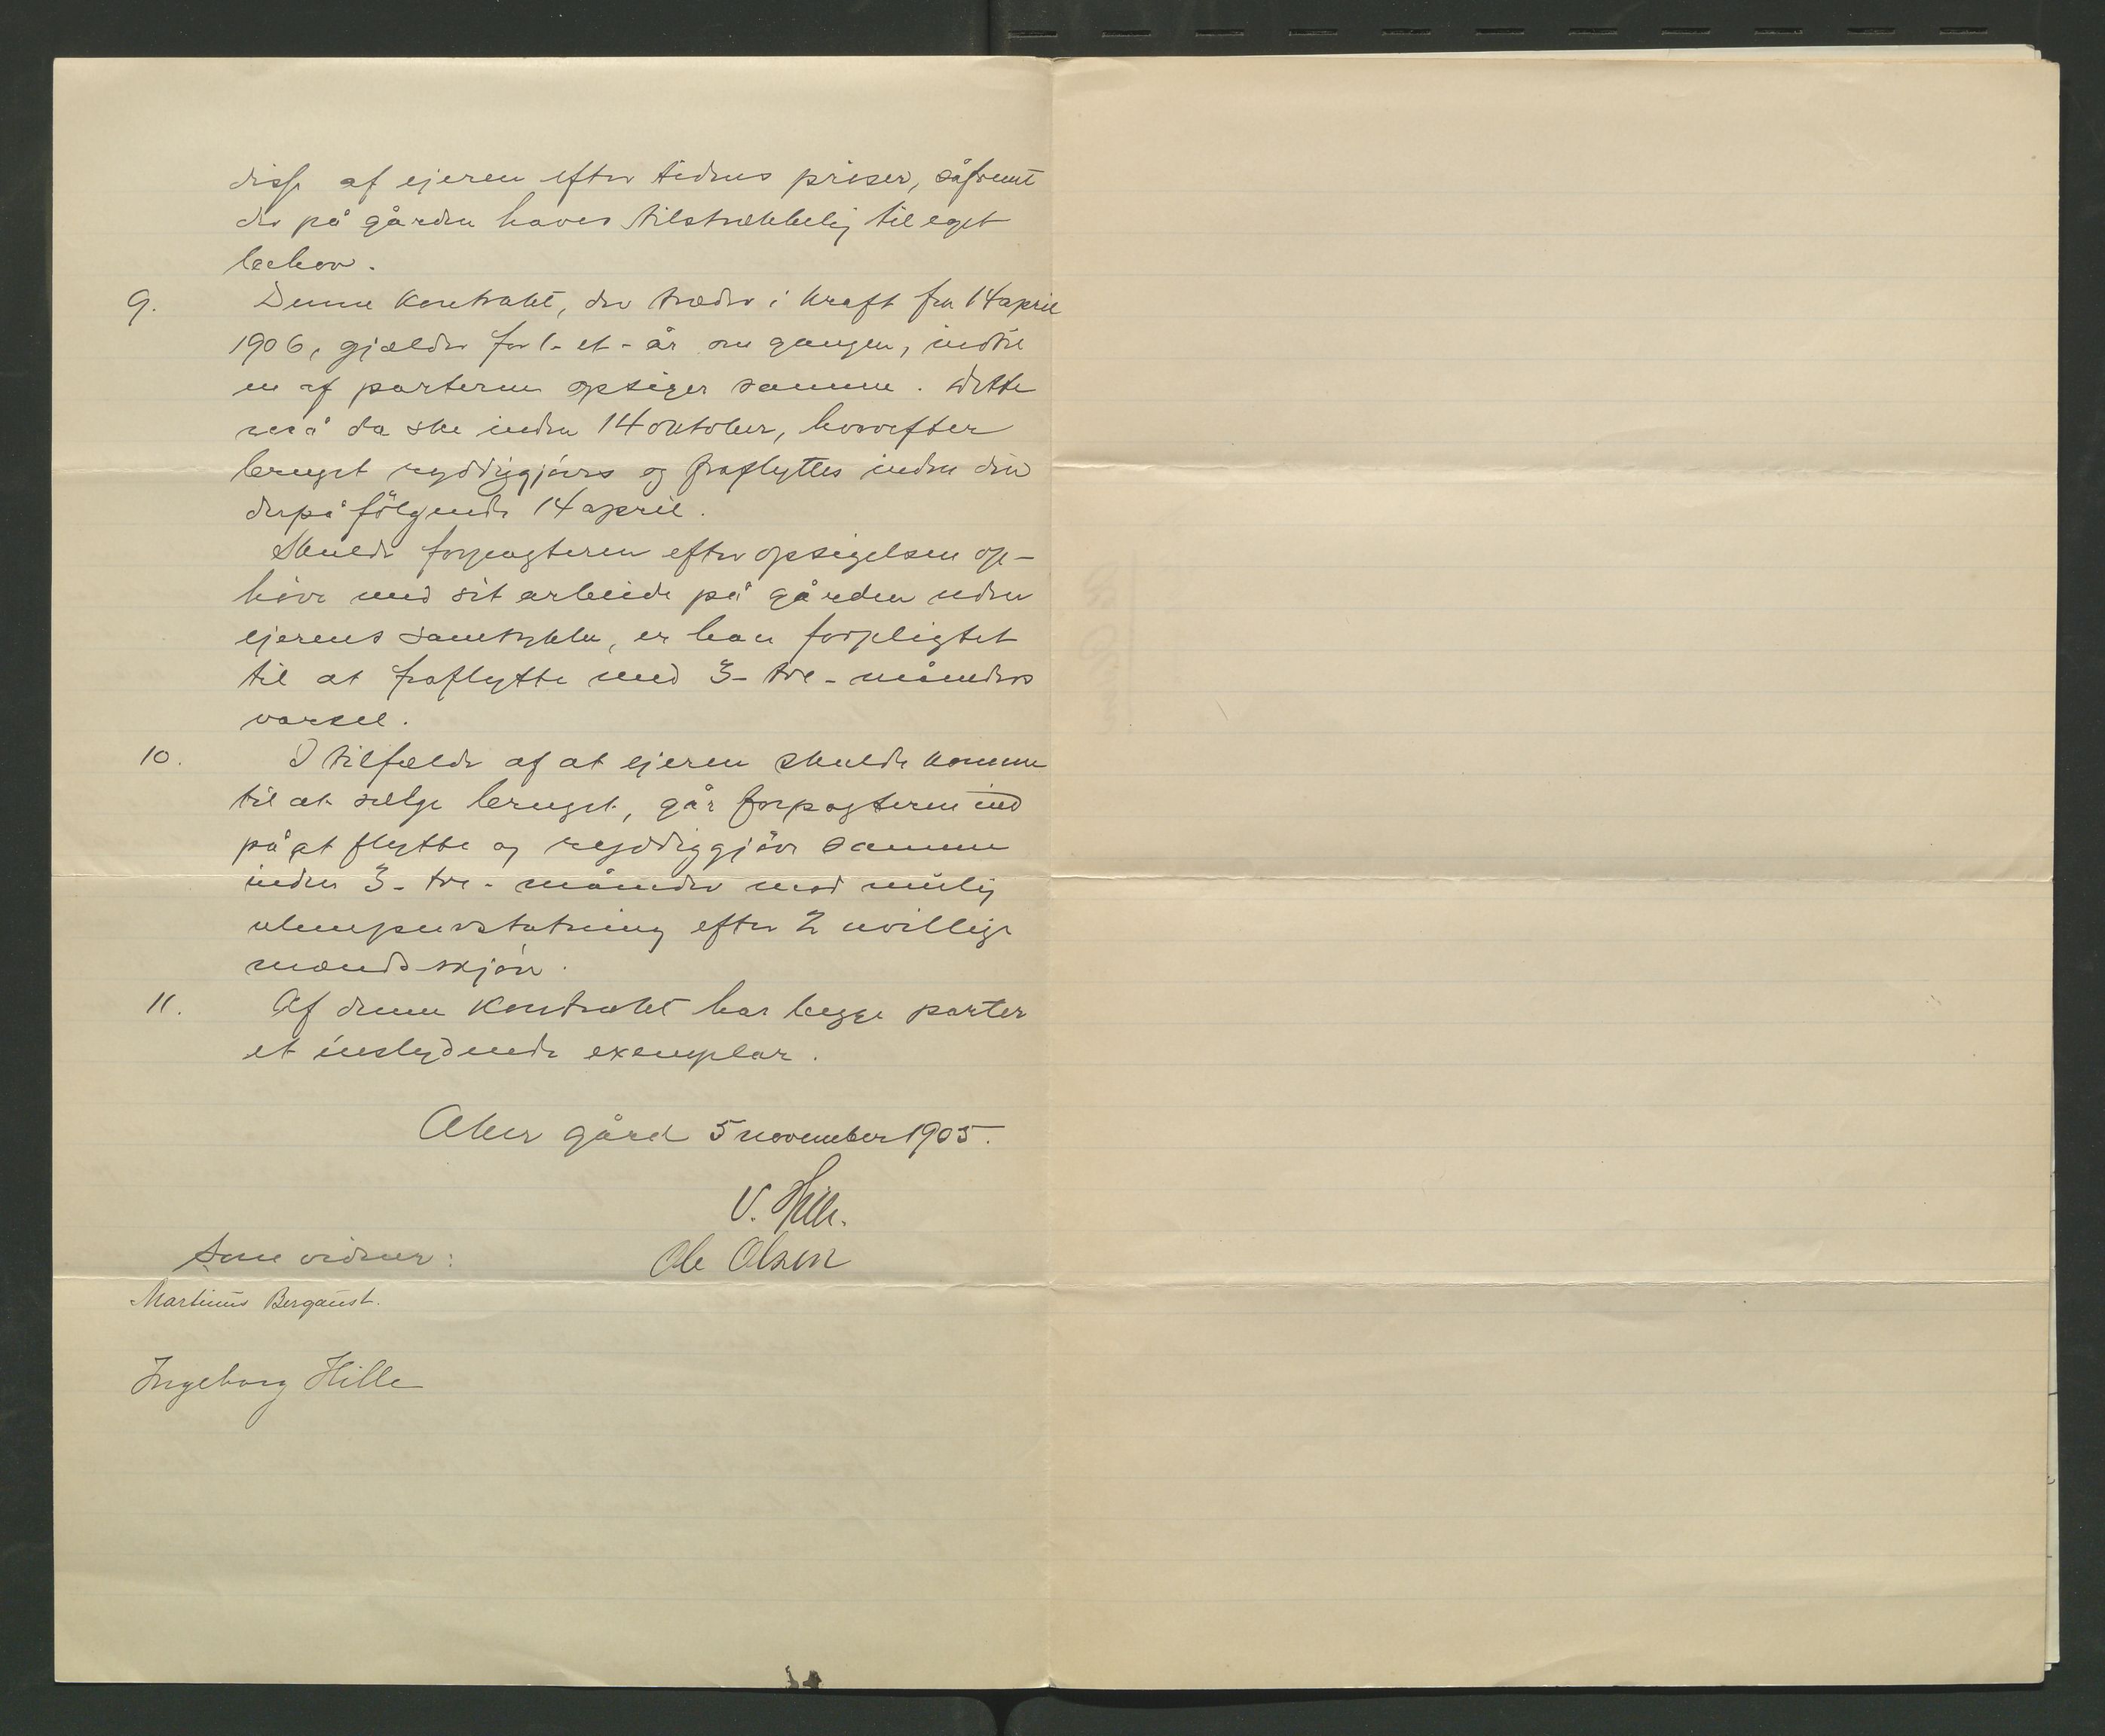 disse af ejeren efter tidens priser, såfremt
der på gården haves tilstrækkelig til eget
behov.
9. Denne kontrakt, der træder i kraft fra 14 april
1906, gjælder for 1- et - år om gangen, indtil
en af parterne opsiger samme. Dette
må da ske inden 14 oktober, hvorefter
bruget ryddiggjøres og fraflyttes inden den
derpå følgende 14 april.
Skulde forpagteren efter opsigelsen op-
høre med sit arbeide på gården uden
ejerens samtykke, er han forpligtet
til at fraflytte med 3- tre - måneders
varsel.
10. I tilfælde af at ejeren skulde komme
til at sælge bruget, går forpagteren ind
på at flytte og ryddiggjøre samme
inden 3- tre - måneder mod mulig
ulempeerstatning efter 2 uvillige
mænds skjøn.
11. Af denne kontrakt har begge parter
et enslydende exemplar.
Aker gård 5 november 1905.
V. Hille.
Ole Olsen
Som vidner:
Martinus Bergaust.
Ingeborg Hille